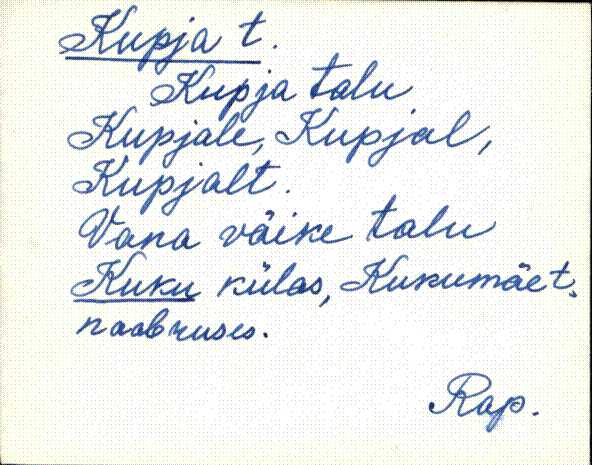 Kupja t.
Kupja talu
Kupjale, Kupjal,
Kupjalt.
Vana väike talu
Kuku külas, Kukumäe t.
naabruses.
Rap.